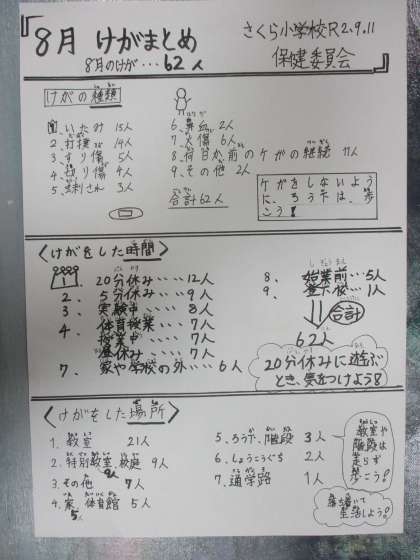 8月 けがまとめ
8月のけが…62人
さくら小学校R2.9.11
保健委員会
けがの種類
1.いたみ 15人
2.打撲 14人
3.すり傷 5人
4.切り傷 4人
5.虫刺され 3人
6.鼻血 2人
7.火傷 6人
8.何日か前のケガの継続 11人
9.その他 2人
合計62人
ケガをしないよう
に、ろう下は、歩
こう!
〈けがをした時間〉
1 20分休み……12人
2. 5分休み……9人
3. 実験中……8人
4. 体育授業……7人
授業中……7人
昼休み……7人
7. 家や学校の外…6人
8. 始業前…5人
9. 登下校…1人
合計
62人
20分休みに遊ぶ
とき、気をつけよう
〈けがをした場所〉
1. 教室 21人
2. 特別教室、校庭 9人
3. その他 7人
4. 家 体育館 5人
5人
5. ろう下、階段 3人
6. しょうこうぐち 2人
7. 通学路 1人
教室や
階段は
走らず
歩こう!
落ち着いて
生活しよう!